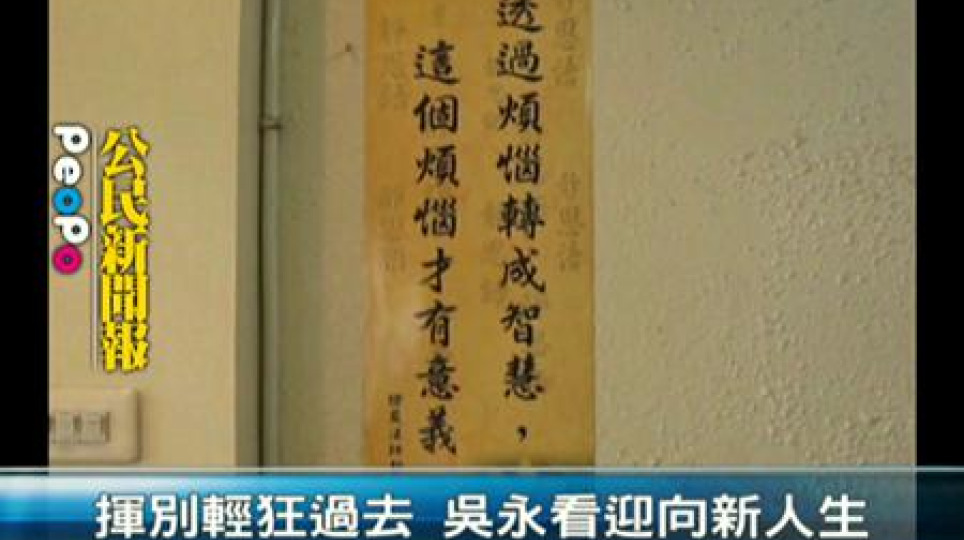 透過煩惱轉成智慧，
這個煩惱才有意義
PeoPo
公民新聞報
揮別輕狂過去 吳永看迎向新人生